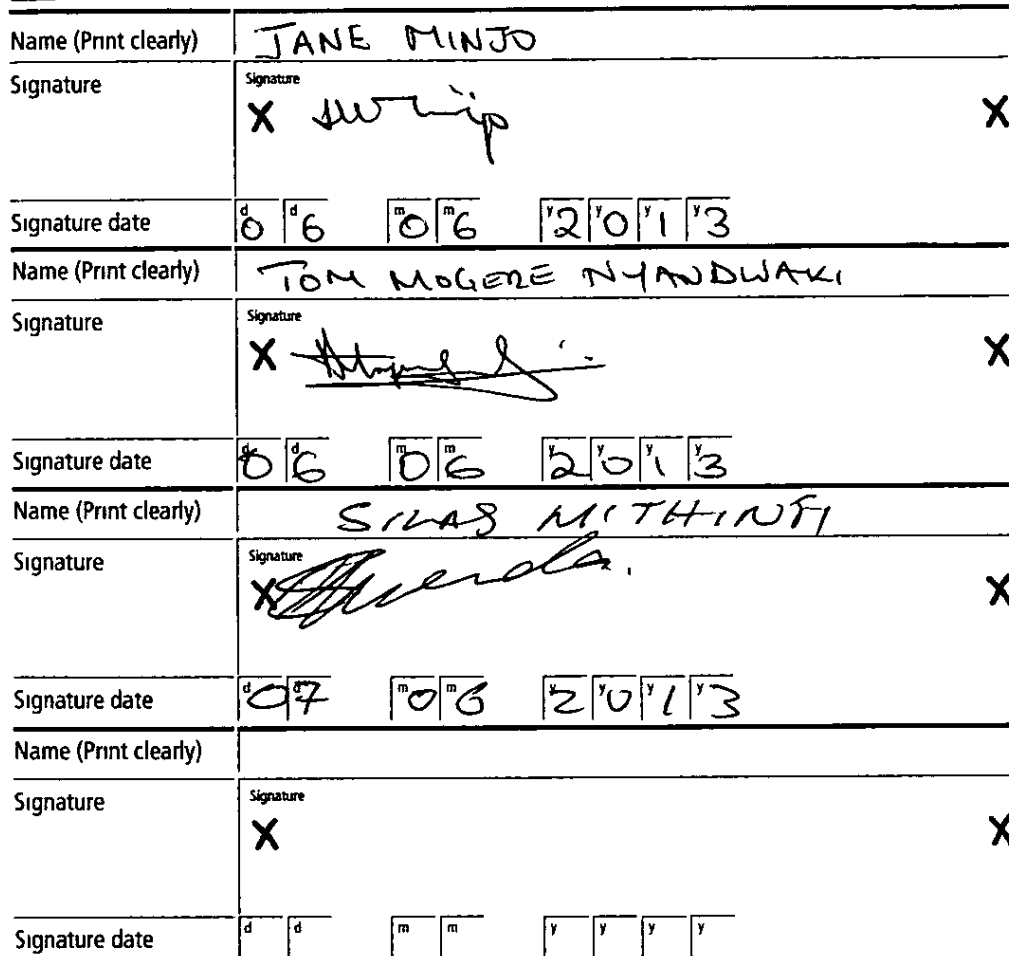 Name (Print clearly) JANE MINJO
Signature Signature
X X
Signature date d0 d6 m0 m6 y2 y0 y1 y3
Name (Print clearly) TOM MOGERE NYANDWAKI
Signature Signature
X X
Signature date d0 d6 m0 m6 y2 y0 y1 y3
Name (Print clearly) SILAS MITHINTI
Signature Signature
X X
Signature date d0 d7 m0 m6 y2 y0 y1 y3
Name (Print clearly)
Signature Signature
X X
Signature date d d m m y y y y